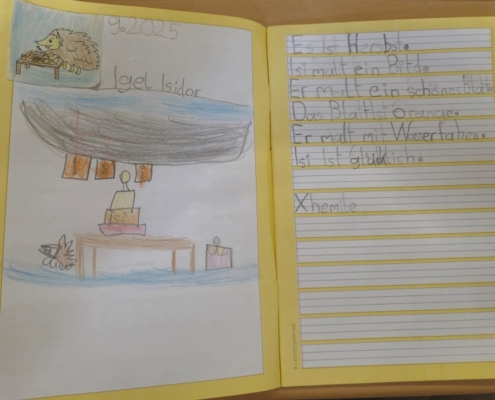 9.2025
Igel Isidor
Isi
Es Ist Herbst.
Isi malt ein Bild.
Er malt ein schönes Blatt
Das Blatt Ist Orange.
Er malt mit
Isi Ist glücklich.
Xhemile